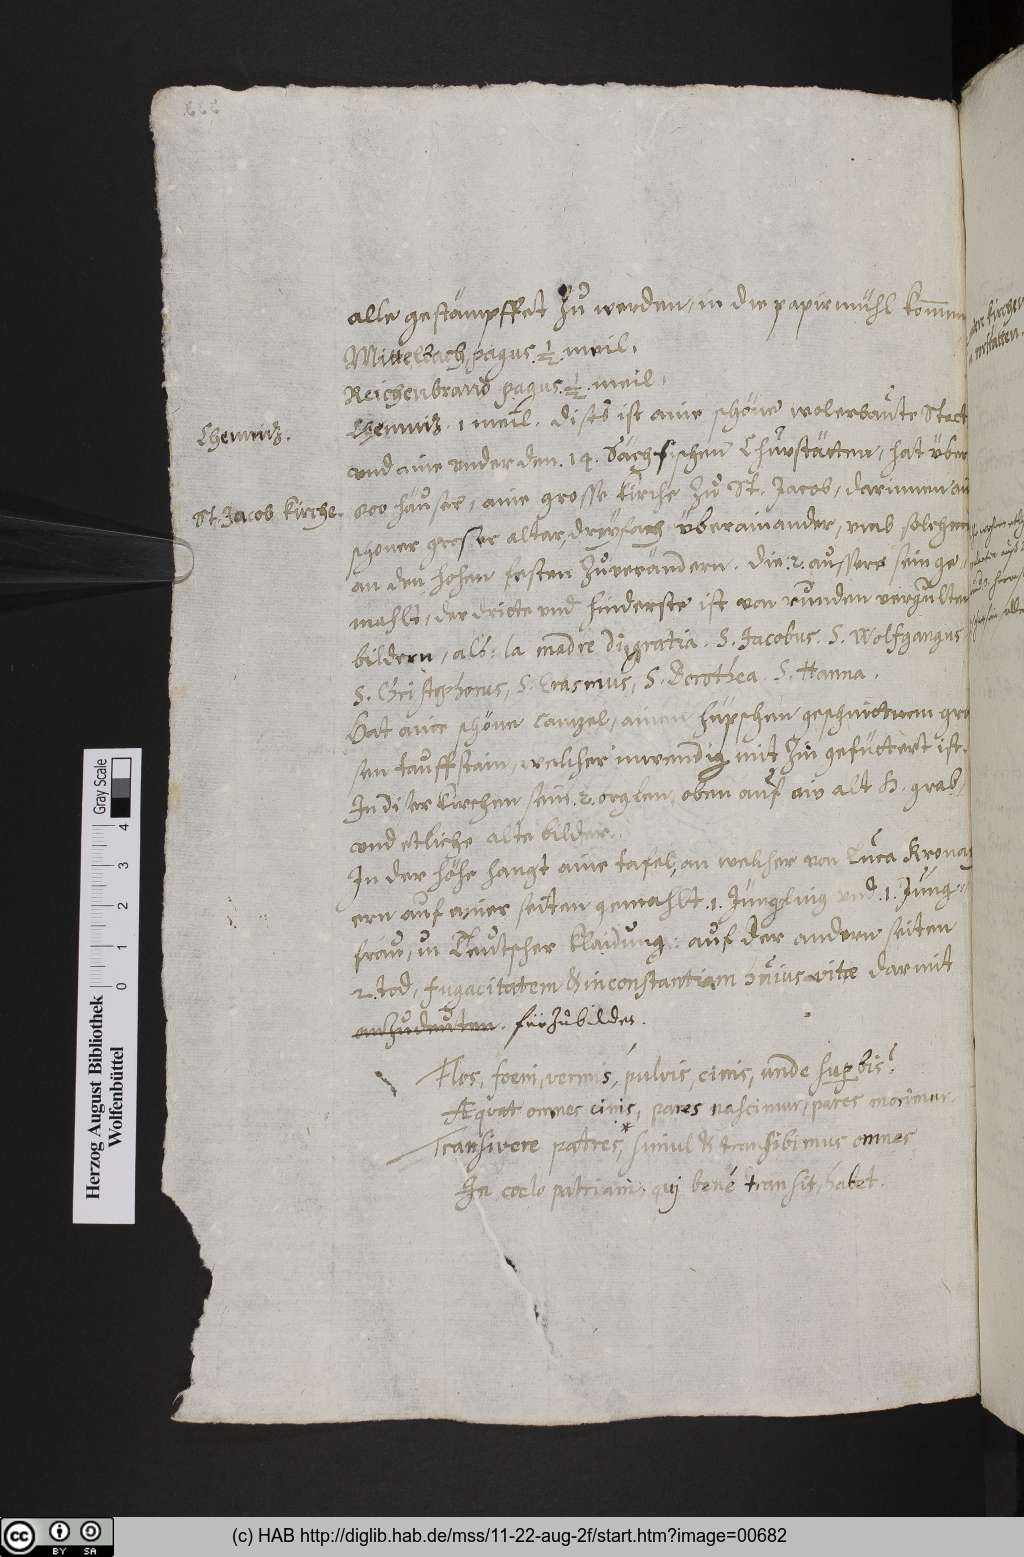 alle gestämpffet Zů werden, in die papirmühl kommen
Mittelbach, pagus. ½. meil.
Reichenbrand pagus. ½. meil.
Chemniz.
Chemniz. 1 meil. dises ist aine schöne wolerbaute Statt
vnd aine vnder den. 14. Sächsischen Chürstätten, hat über
St. Jacob kirche.
800 häuser, aine grosse kirche Zů St. Jacob, darinnen ain
schöner grosser altar, dreyfach überainander, vmb solchen
an den hohen festen Zůverändern. die .2. aussere sein ge-
mahlt, der dritte vnd hinderste ist von runden vergülten
bildern, als: la madre di gratia. S. Jacobus. S. Wolfgangus
S. Christophorus, S. Erasmus, S. Dorothea. S. Hanna.
Hat aine schöne Canzel, ainen hüpschen geschnittnem gro
sen tauffstain, welcher inwendig mit Zin gefüttert ist.
In diser kirchen sein .2. orglen, oben auf ain alt H. grab,
vnd etliche alte bilder.
In der höhe hangt aine tafel, an welcher von Luca Kronach
ern auf ainer seiten gemahlt .1. Jüngling vnd .1. Jung-
frau, in Teutscher klaidung: auf der andern seiten
2. tod, fugacitatem & inconstantiam huius vitæ darmit
anzudeuten. fürzubilden.
Flos, foeni, vermis, pulvis, cinis, unde superbis?
Æquat omnes cinis, pares nascimur, pares morimur.
Transivere patres,* simul & transibimus omnes
In coelo patriam, qui bené transit, habet.
Herzog August Bibliothek
Wolfenbüttel
Gray Scale
0 1 2 3 4
cc BY SA
(c) HAB http://diglib.hab.de/mss/11-22-aug-2f/start.htm?image=00682